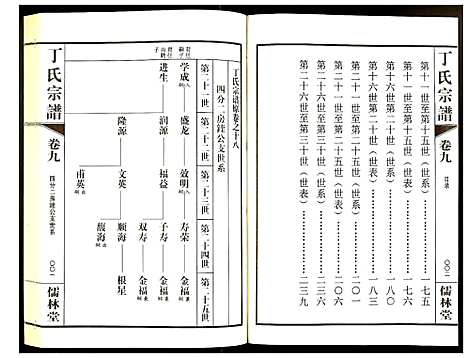 第十一世至第十五世（世系）一七五
第十一世至第十五世（世表）一七八
第十六世第二十世（世系）一八三
第十六世第二十世（世表）一八六
第十六世第二十世（世表）二〇一
第二十六世至第二十五世（世系）二三六
第二十六世至第三十世（世表）二三九
丁氏宗譜
卷九
目录
〇〇二
儒林堂
丁氏宗谱原卷之十八
四分二房鍷公支世系
第二十一世
第二十二世
第二十三世
第二十四世
第二十五世
学成
盛龙
效明
寿荣
金福
进生
润源
福益
子寿
金福
双寿
金福
隆源
文英
顺海
根星
馥海
甫英
丁氏宗譜
卷九
四分二房鍷公支世系
〇〇一
儒林堂